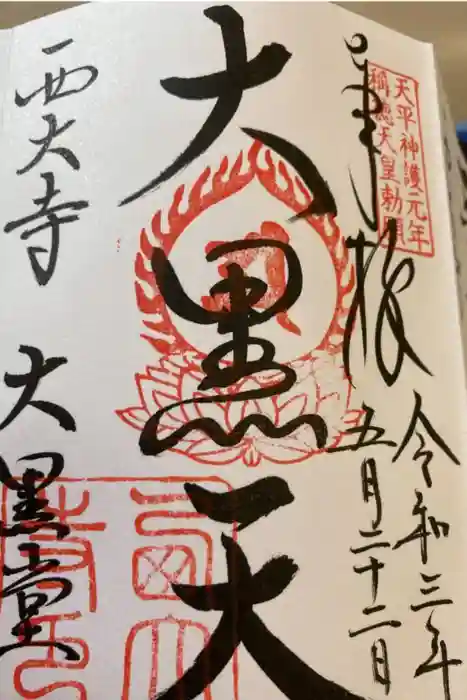 奉拝
天平神護元年
稱徳天皇勅願
令和三年
五月二十二日
大黒天
西大寺
大黒堂